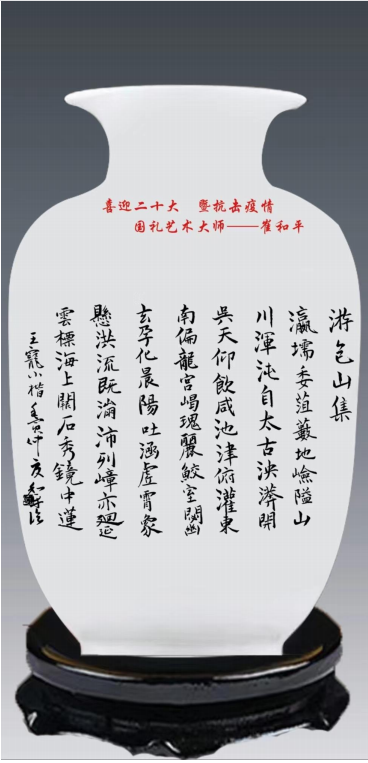 喜迎二十大 暨抗击疫情
国礼艺术大师——崔和平
游包山集
瀛壖委菹薮地崄隘山
川渾沌自太古泱漭開
吳天仰飲咸池津俯灌東
南偏龍宮嵑瑰麗鮫室閟幽
玄孕化晨陽吐涵虛霄象
懸洪流既瀰沛列嶂亦廻延
雲標海上關石秀鏡中蓮
王寵小楷壬寅仲夏